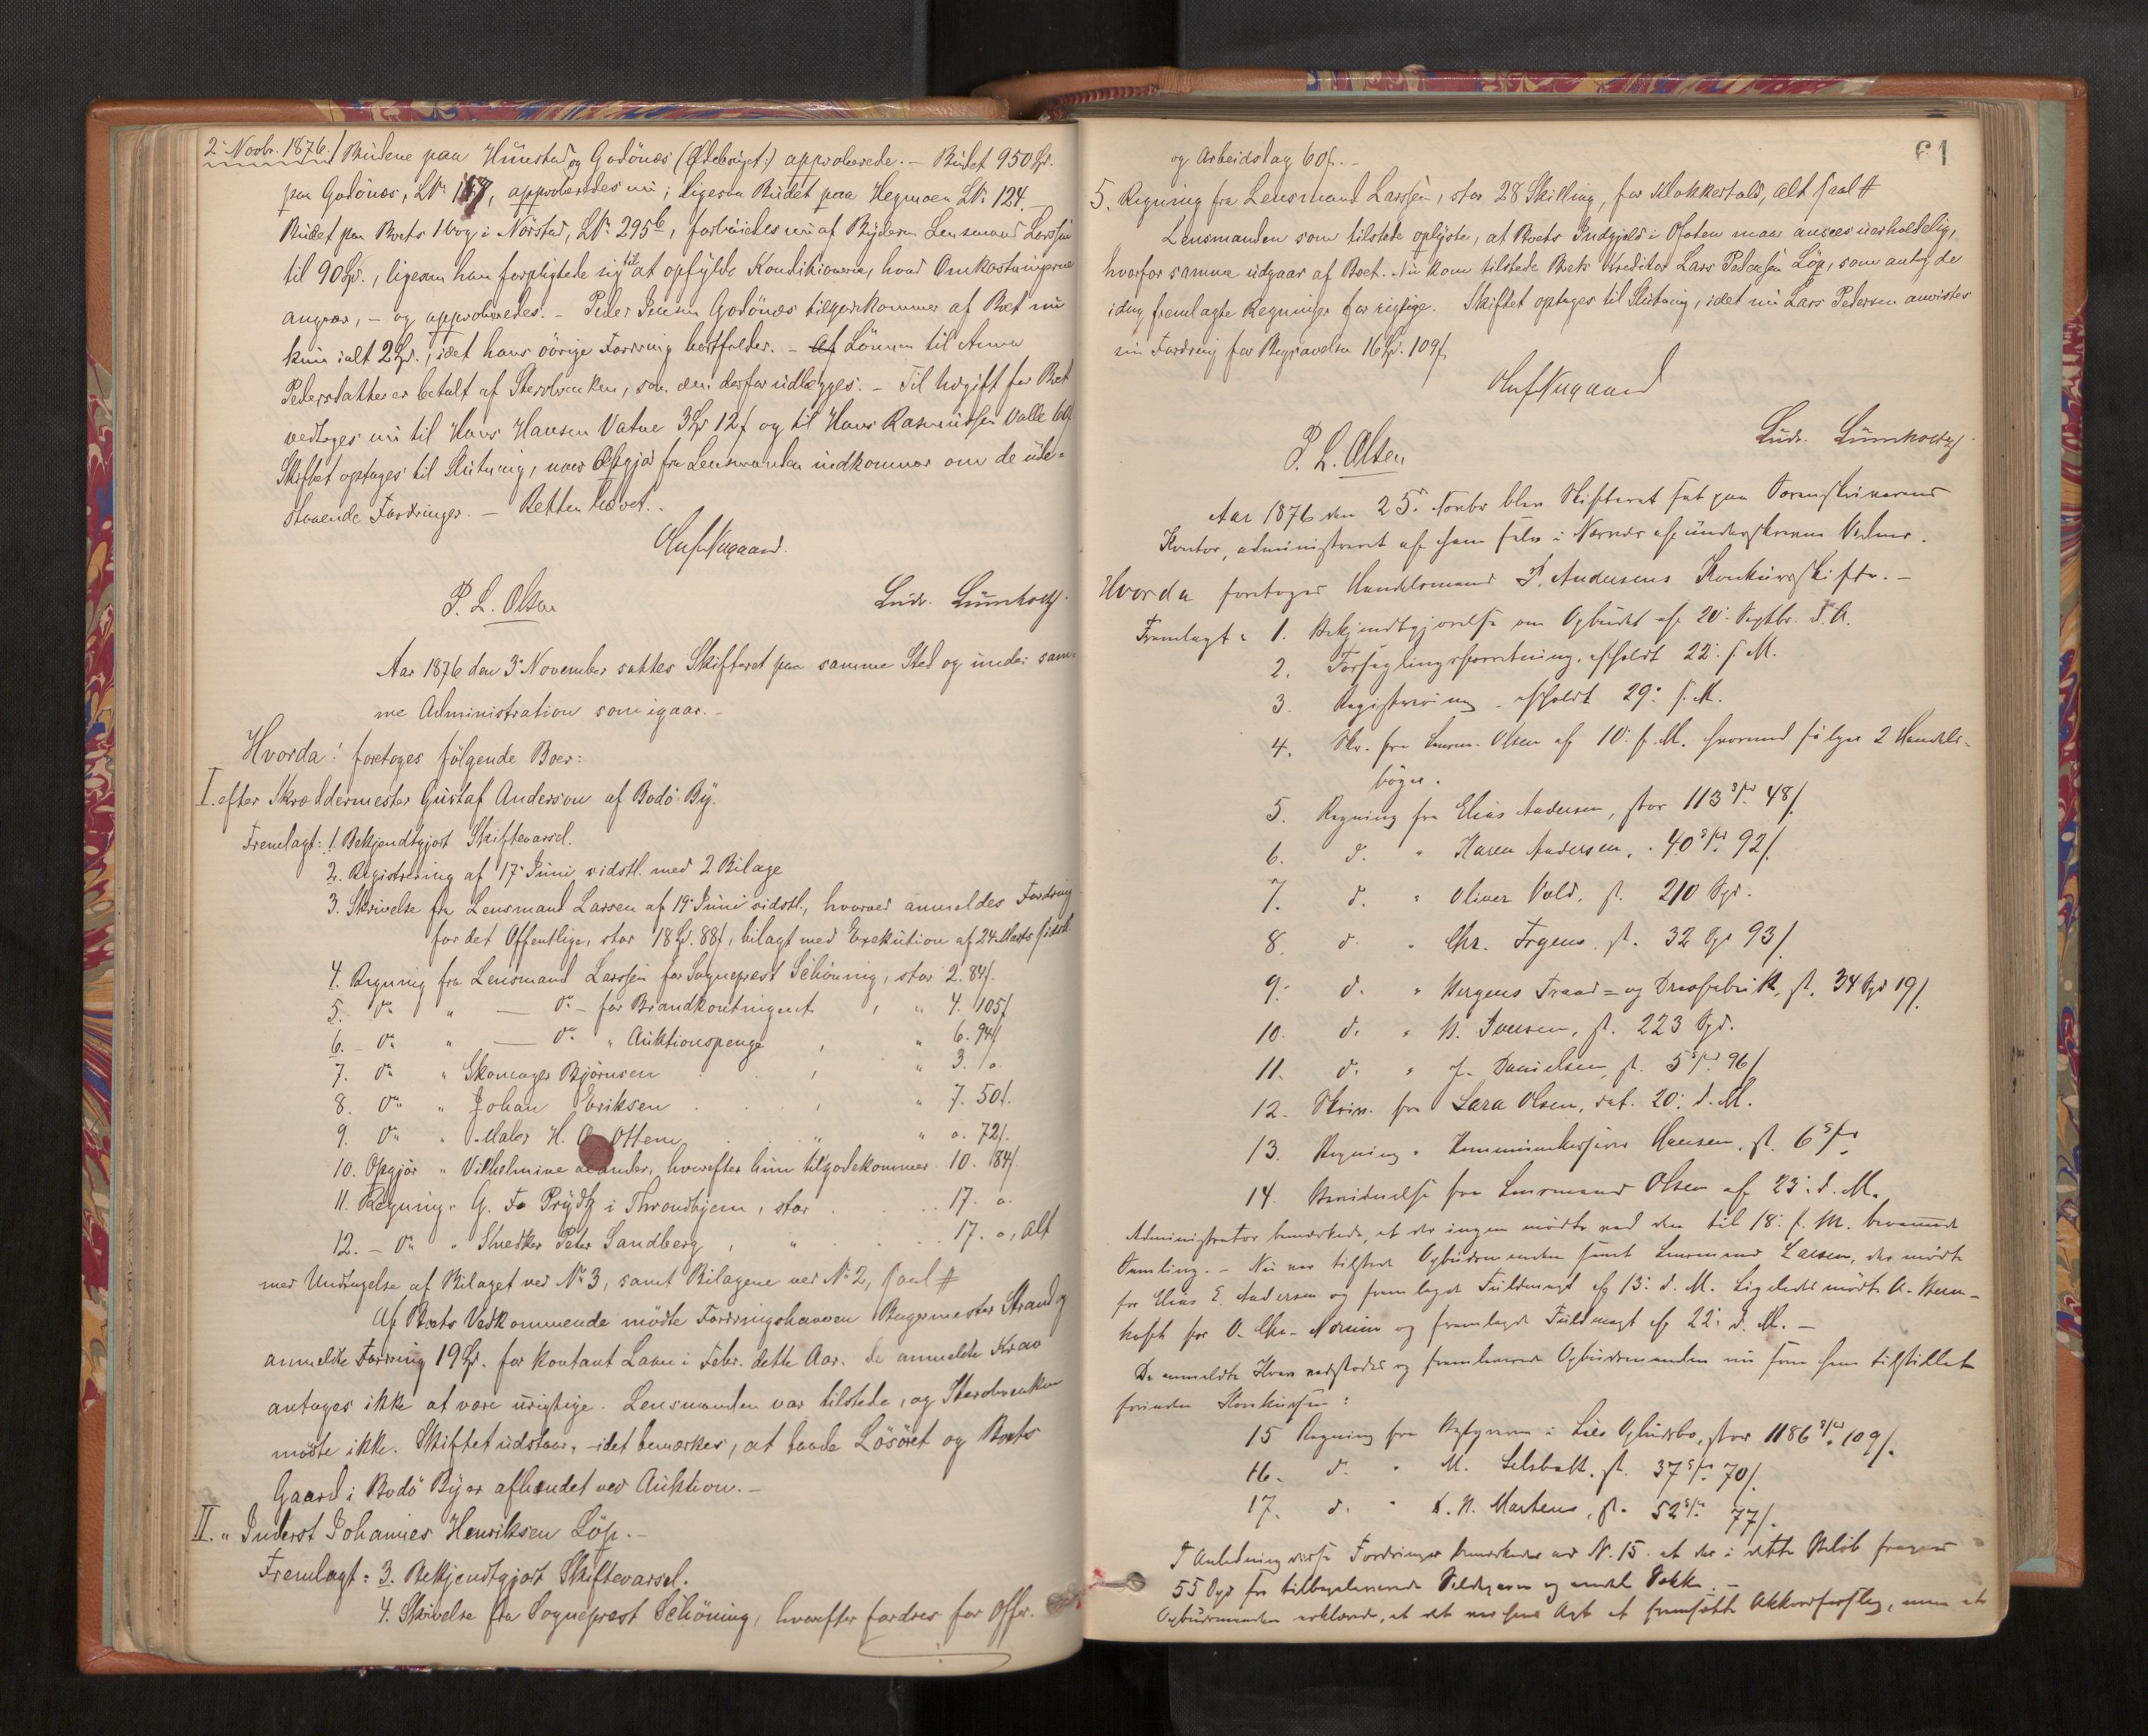 2. Novbr. 1876./ Budene paa Hunstad og Godönæs (Ødebröset:) approberede. – Budet 950 Spd.
paa Godönæs, LNr 117, approberedes nu; ligesaa Budet paa Hegmoen LNr 124. –
Budet paa Boets 1 Vog i Nörstad, LNr 295b, forhöiedes nu af Byderen Lensmand Larssen
til 90 Spd., ligesom han forpligtede sig til at opfylde Konditionerne, hvad Omkostningerne
angaar, – og approberedes. – Peder Jensen Godönæs tilgodekommer af Boet nu
kun ialt 2 Spd., idet hans övrige Fordring bortfalder. – Lönnen til Anna
Pedersdatter er betalt af Stervboenken, som den derfor udlægges. – Til Udgift for Boet
vedtoges nu til Hans Hansen Vatne 3 Spd 12 s og til Hans Rasmussen Valle 60 s
Skiftet optages til Slutning, naar Opgjör fra Lensmanden indkommer om de ude-
staaende Fordringer. – Retten hævet.
Oluf Nugaard.
P. L. Olsen
Ludv. Lumholtz.
Aar 1876 den 3' November sattes Skifteret paa samme Sted og under sam-
me Administration som igaar. –
Hvorda! foretoges fölgende Boer:
I. efter Skræddermester Gustaf Anderson af Bodö By.
Fremlagt: 1. Bekjendtgjort Skiftevarsel.
2. Registrering af 17' Juni sidstl. med 2 Bilage
3. Skrivelse fra Lensmand Larsen af 19' Juni sidstl., hvorved anmeldes Fordring
for det Offentlige, stor 18 Spd. 88 s, bilagt med Exekution af 24 Marts sidstl.
4. Regning fra Lensmand Larssen for Sogneprest Schönning, stor 2. 84 s.
5. Do " — Do – for Brandkontingent , " 4. 105 s
6. – Do " — Do " Auktionspenge , " 6. 94 s
7. Do " Skomager Björnsen , " 3. "
8. Do " Johan Eriksen , " 7. 50 s.
9. Do " Maler H. O. Ottem " " 0. 72 s.
10. Opgjör " Vilhelmine , hvorefter hun tilgodekommer 10. 84 s
11. Regning " G. F. Prydtz i Throndhjem, stor . . . 17. o.
12. – Do " Snedker Peter Sandberg , " . . . 17. o, alt
med Undtagelse af Bilaget ved No 3, samt Bilagene ved No 2, saal #
Af Boets Vedkommende mödte Fordringshaveren Bagermester Strand og
anmeldte Fordring 19 Spd. for kontant Laan i Febr. dette Aar. De anmeldte Krav
antages ikke at være urigtige. Lensmanden var tilstede, og Stervboenken
mödte ikke. Skiftet udstaar, – idet bemærkes, at baade Lösöret og Boets
Gaard i Bodö By er afhændet ved Auktion. –
II. " Inderst Johannes Henriksen Löp. –
Fremlagt: 3. Bekjendtgjort Skiftevarsel.
4. Skrivelse fra Sogneprest Schöning, hvorefter fordres for Offer.
61
og Arbeidsdag 60 s. –
5. Regning fra Lensmand Larssen, stor 28 Skilling, for Klokkertold, alt saal #
Lensmanden som tilstede oplyste, at Boets Indgjeld i Ofoten maa ansees uerholdelig,
hvorfor samme udgaar af Boet. Nu kom tilstede Boets Kreditor Lars Pedersen Löp, som antog de
idag fremlagte Regninger for rigtige. Skiftet optages til Slutning, idet nu Lars Pedersen anvistes
sin Fordring for Begravelsen 16 Spd. 109 s
Oluf Nugaard
P. L. Olsen
Ludv. Lumholtz.
Aar 1876 den 25' Novbr blev Skifteret sat paa Sorenskriverens
Kontor, administreret af ham selv i Nærvær af underskrevne Vidner.
Hvorda foretoges Handelsmand P. Andersens Konkursskifte. –
Fremlagt: 1. Bekjendtgjörelse om Opbudet af 20' Septbr. d. A.
2. Forseglingsforretning, afholdt 22' s. M.
3. Registrering – afholdt 29' s. M.
4. Skr. fra Lensm. Olsen af 10' f. M. hvormed fölger 2 Handels-
böger.
5. Regning fra Elias Andersen, stor 113 Spd. 48 s.
6. d. " Karen Andersen, " 40 Spd. 92 s.
7. d. " Oliver Vold, st. 210 Spd.
8. d. " Chr. Frgens st. 32 Spd 93 s
9. d. " Bergens Traad- og Drevfabrik, st. 34 Spd 19 s.
10. d. " N. Iversen, st. 223 Spd.
11. d. " J. Danielsen, st. 5 Spd 96 s
12. Skriv. fra Lara Olsen, dat. 20' d. M.
13. Regning " Kommunekasserer Hansen, st. 6 Spd
14. Skrivelse fra Lensmand Olsen af 23' d. M.
Administrator bemærkede, at der ingen mödte ved den til 18' f. M. berammede
Samling. – Nu var tilstede Opbudsmanden samt Lensmand Larsen, der mödte
for Elias E. Andersen og fremlagde Fuldmagt af 13' d. M. Ligeledes mödte A. Stern-
hoft for O. Chr. Normann og fremlagde Fuldmagt af 22' d. M. –
De anmeldte Krav vedstodes og fremleverede Opbudsmanden nu som ham tilstillet
forinden Konkursen:
15 Regning fra i Lies Opbudsbo, stor 1186 Spd. 109 s.
16. d. " M. Selsbakk, st. 37 Spd 70 s.
17. d. " C. N. Martens, st. 52 Spd 77 s.
I Anledning disse Fordringer bemærkedes ved N. 15 at der i dette Belöb fragaar
55 Spd for tilbageleverede Sildegarn og endel Sække. –
Opbudsmanden erklærede, at det var hans Agt at fremsætte Akkordforslag, men at